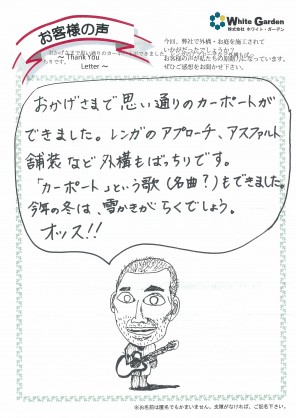 お客様の声
〜 Thank You
Letter 〜
White Garden
株式会社 ホワイト・ガーデン
今回、弊社で外構・お庭を施工されて
いかがだったでしょうか?
お客様の声が私たちの原動力になっています。
ぜひご感想をお聞かせ下さい。
おかげさまで思い通りのカーポートが
できました。レンガのアプローチ、アスファルト
舗装など外構もばっちりです。
「カーポート」という歌(名曲?)もできました。
今年の冬は、雪かきがらくでしょう。
オッス!!
※お名前は匿名でもかまいません。支障がなければ、ご記名下さい。